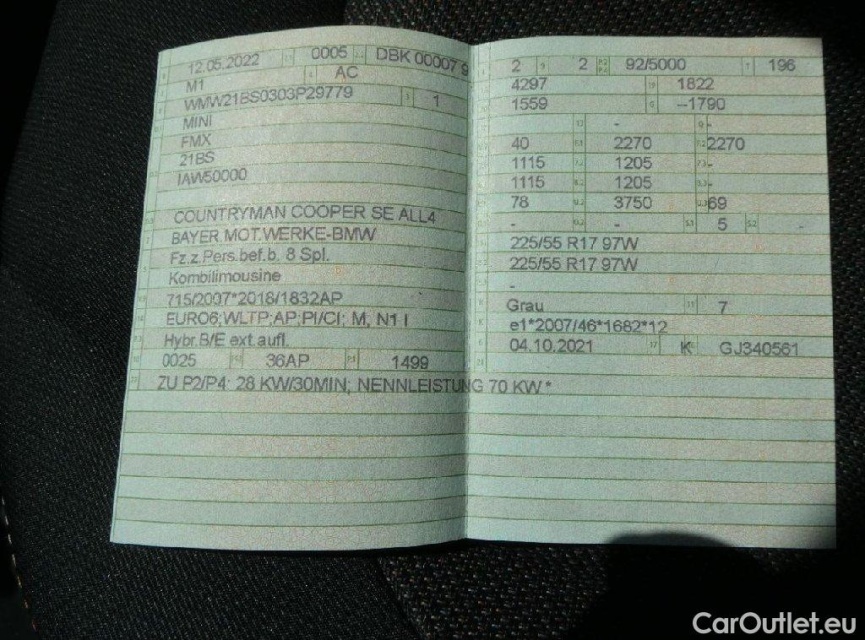 12.05.2022 0005 DBK 00007 9
M1 AC
WMW21BS0303P29779 1
MINI
FMX
21BS
IAW50000
COUNTRYMAN COOPER SE ALL4
BAYER.MOT.WERKE-BMW
Fz.z.Pers.bef.b. 8 Spl.
Kombilimousine
715/2007*2018/1832AP
EURO6;WLTP;AP;PI/CI; M, N1 I
Hybr.B/E ext.aufl.
0025 36AP 1499
ZU P2/P4: 28 KW/30MIN; NENNLEISTUNG 70 KW.*
2 2 92/5000 196
4297 1822
1559 --1790
- -
40 2270 2270
1115 1205 -
1115 1205 -
78 3750 69
- - 5 -
225/55 R17 97W
225/55 R17 97W
-
Grau 7
e1*2007/46*1682*12
04.10.2021 K GJ340561
CarOutlet.eu